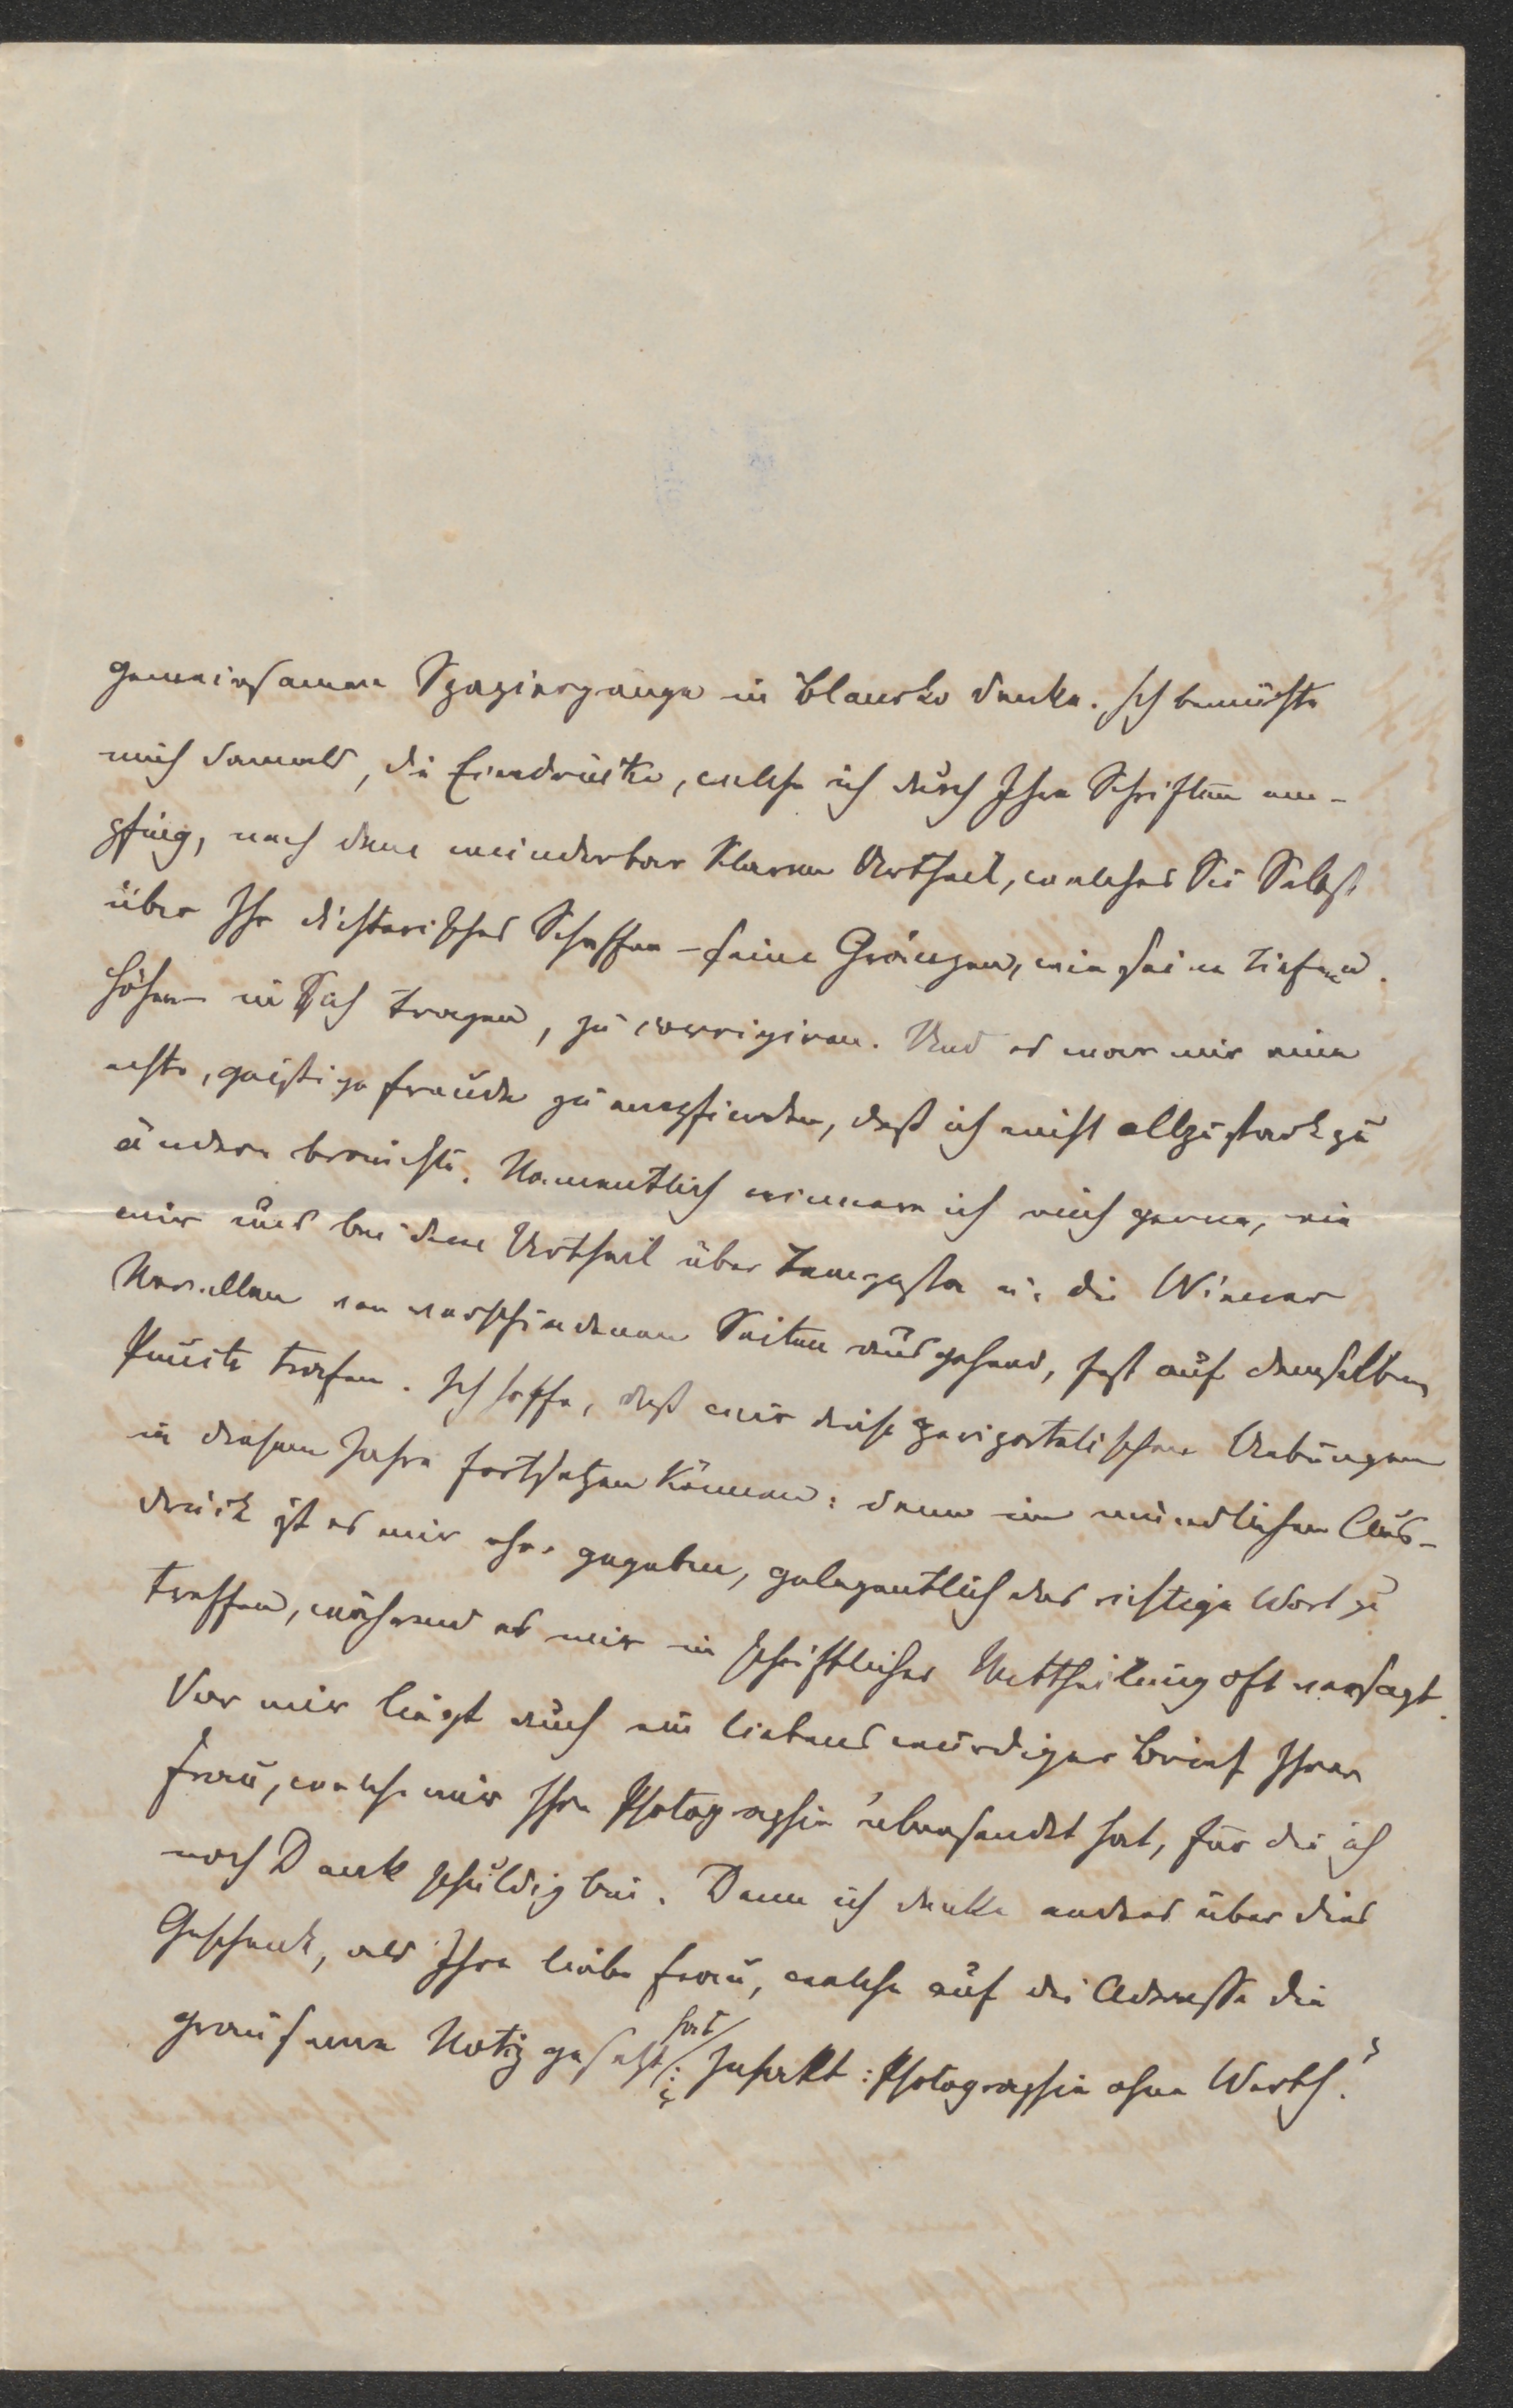 gemeinsamen Spaziergänge in Blansko denke. Ich bemühte
mich damals, die Eindrücke, welche ich durch Ihre Schriften em-
pfing, nach dem wunderbar klaren Urtheil, welches Sie Selbst
über Ihr dichterisches Schaffen – seine Gränzen, wie seine Tiefen u.
Höhen – in Sich tragen, zu corrigiren. Und es war mir eine
echte, geistige Freude zu empfinden, daß ich nicht allzustark zu
ändern brauchte. Namentlich erinnere ich mich gerne, wie
wir uns bei dem Urtheil über Tempesta u. die Wiener
Novellen von verschiedenen Seiten ausgehend, fast auf demselben
Punkte trafen. Ich hoffe, daß wir diese peripatetischen Uebungen
in diesem Jahre fortsetzen können: denn im mündlichen Aus-
druck ist es mir eher gegeben, gelegentlich das richtige Wort zu
treffen, während es mir in schriftlicher Mittheilung oft versagt.
Vor mir liegt auch ein liebenswürdiger Brief Ihrer
Frau, welche mir Ihre Photographie übersendet hat, für die ich
noch Dank schuldig bin. Denn ich denke anders über dies
Geschenk, als Ihre liebe Frau, welche auf die Adresse die
grausame Notiz gesetzt hat: „Inhalt: Photographie ohne Werth."